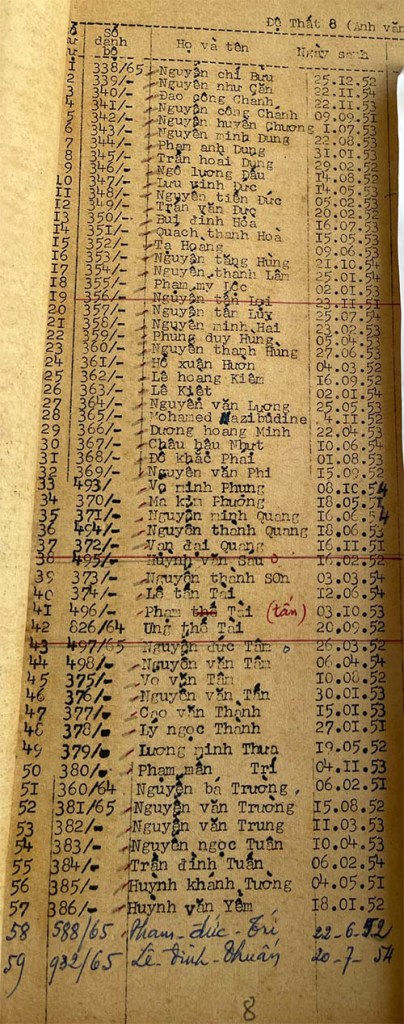 Đệ Thất 8 (Anh văn
Số danh bộ Họ và tên Ngày sanh
1 338/65 Nguyễn chí Bửu 25.12.52
2 339/- Nguyễn như Cẩn 22.11.54
3 340/- Đào công Chánh 22.11.53
4 341/- Nguyễn công Chánh 09.09.51
5 342/- Nguyễn huyền Chương 1.07.53
6 343/- Nguyễn minh Dung 22.08.53
7 344/- Phạm anh Dũng 31.01.53
8 345/- Trần hoài Dung 29.02.52
9 346/- Ngô lương Đẩu 14.08.52
10 347/- Lưu vinh Đức 14.05.53
11 348/- Nguyễn tiến Đức 05.02.53
12 349/- Trần văn Đức 20.02.52
13 350/- Bùi đình Hòa 16.07.53
14 351/- Quách thanh Hoà 15.05.53
15 352/- Tạ Hoang 09.06.53
16 353/- Nguyễn tăng Hùng 21.10.54
17 354/- Nguyễn thanh Lâm 25.01.54
18 355/- Phạm mỹ Lộc 02.01.53
19 356/- Nguyễn tấn Lợi 23.11.51
20 357/- Nguyễn tấn Lũy 25.07.54
21 358/- Nguyễn minh Hai 23.02.53
22 359/- Phùng duy Hưng 05.04.53
23 360/- Nguyễn thanh Hùng 27.06.53
24 361/- Hồ xuân Hườn 04.03.52
25 362/- Lê hoang Kiêm 16.09.52
26 363/- Lê Kiệt 02.01.54
27 364/- Nguyễn văn Lương 25.05.53
28 365/- Mohamed Nazibudine 4.11.52
29 366/- Dương hoang Minh 22.04.53
30 367/- Châu hậu Nhựt 10.06.54
31 368/- Đỗ khắc Phai 01.08.53
32 369/- Nguyễn văn Phi 15.09.52
33 493/ Võ minh Phung 08.10.54
34 370/- Ma kim Phương 18.05.51
35 371/- Nguyễn minh Quang 16.06.54
36 494/- Nguyễn thanh Quang 18.06.53
37 372/- Văn đai Quang 16.11.51
38 495/- Huỳnh văn Sau 16.02.52
39 373/- Nguyễn thành SƠn 03.03.54
40 374/- Lê tấn Tài 12.06.54
41 496/- Phạm thế Tài (tấn) 03.10.53
42 826/64 Ung thế Tài 20.09.52
43 497/65 Nguyễn đức Tâm 26.03.52
44 498/- Nguyễn văn Tâm 06.04.54
45 375/- Võ văn Tâm 10.08.52
46 376/- Nguyễn văn Tấn 30.01.53
47 377/- Cao văn Thành 15.01.53
48 378/- Lý ngọc Thanh 27.01.51
49 379/- Lương minh Thưa 19.05.52
50 380/- Phạm mẫn Trí 04.11.53
51 360/64 Nguyễn bá Trương 06.02.51
52 381/65 Nguyễn văn Trường 15.08.52
53 382/- Nguyễn văn Trung 11.03.53
54 383/- Nguyễn ngọc Tuấn 10.04.53
55 384/- Trần đình Tuấn 06.02.54
56 385/- Huỳnh khánh Tường 04.05.51
57 386/- Huỳnh văn Yêm 18.01.52
58 588/65 Phạm-đức-Trí 22-6-52
59 932/65 Lê-Đình-Thuấn 20-7-54
8